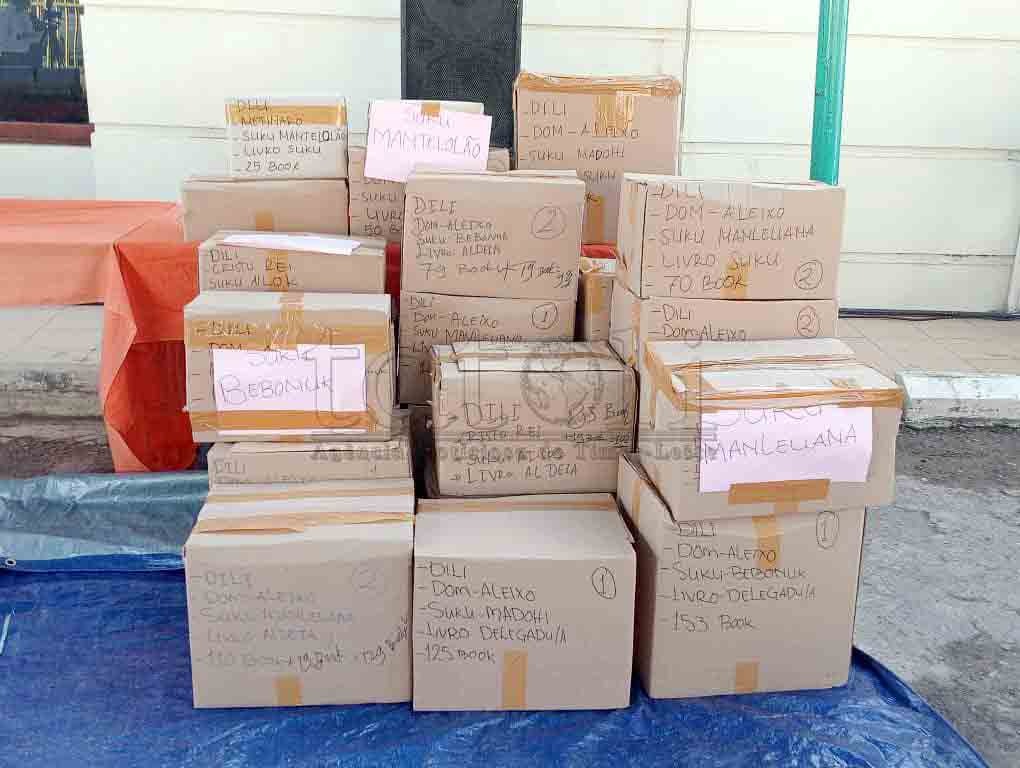 DILI
- METINARO
- SUKU MANTELOLÃO
- LIVRO SUKU
- 25 BOOK
SUKU
MANTELOLÃO
DOM
SUKU
LIVRO
50 BO
- DILI
- DOM-ALEIXO
- SUKU MADOHI
SUKU
DILI
DOM-ALEIXO
SUKU BEBONUK
LIVRO ALDEIA
79 BOOK
2
- DILI
- DOM-ALEIXO
- SUKU MANLELIANA
- LIVRO SUKU
- 70 BOOK
2
DILI
- CRISTU REI
SUKU
- DILI
SUKU
BEBONUK
- DILI
- DOM-ALEIXO
- SUKU MANLEUANA
1
- DILI
- DOM-ALEIXO
2
DILI
CRISTO REI
LIVRO ALDEIA
SUKU
MANLELIANA
DILI
tatoli
Agência Noticiosa de Timor-Leste
- DILI
- DOM-ALEIXO
- SUKU MANLEUANA
- LIVRO ALDEIA
- 110 BOOK
2
- DILI
- DOM-ALEIXO
- SUKU-MADOHI
- LIVRO DELEGADU/A
- 125 BOOK
1
- DILI
- DOM-ALEIXO
- SUKU-BEBONUK
- LIVRO DELEGADU/A
- 153 BOOK
1